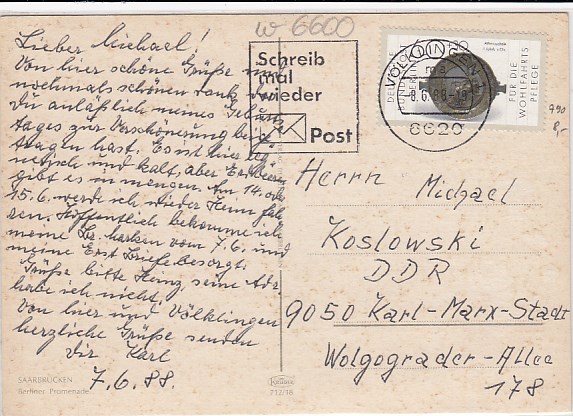 w 6600
Lieber Michael!
Von hier schöne Grüße und
nochmals schönen Dank, daß
Du anläßlich meines Geburts
tages zur Verschönerung bei
tragen hast. Es ist hier reg
nerisch und kalt, aber Erdbeeren
gibt es in mengen. Am 14. od
15.6. werde ich wieder heim fah
ren. Hoffentlich bekomme ich
meine Br. marken vom 7.6. und
meine Erst briefe besorgt.
Grüße bitte Heinz, seine Adr
habe ich nicht.
Von hier und Völklingen
herzliche Grüße senden
dir Karl
7.6.88.
SAARBRÜCKEN
Berliner Promenade
712/16
Schreib
mal
wieder
Post
VÖLKLINGEN 1
ma
8.6.88-19
6620
DEUTSCHE BUNDESPOST
80
FÜR DIE
WOHLFAHRTS
PFLEGE
790
Herrn Michael
Koslowski
DDR
9050 Karl-Marx-Stadt
Wolgograder-Allee
178